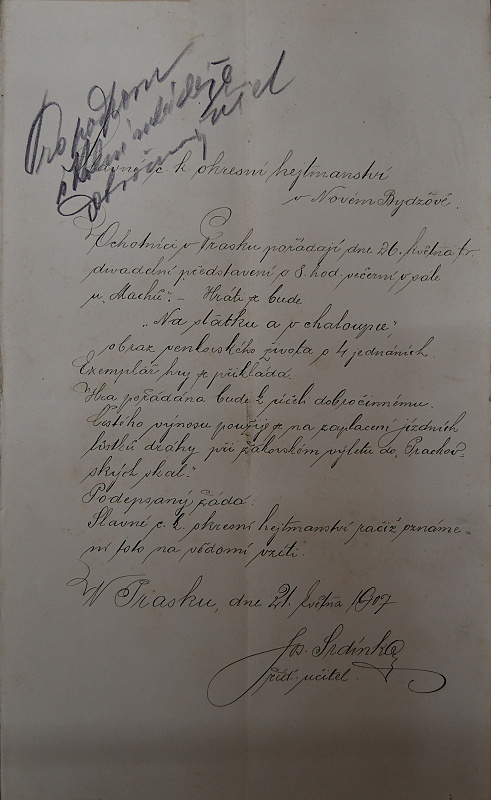 Pro podporu
školní mládeže
dobročinný účel
Slavné c. k. okresní hejtmanství
v Novém Bydžově.
Ochotníci v Prasku pořádají dne 26. května t.r.
divadelní představení o 8. hod. večerní v sále
u „Machů“. – Hráti se bude
„Na statku a v chaloupce“,
obraz venkovského života o 4 jednáních.
Exemplář hry se přikládá.
Hra pořádána bude k účeli dobročinnému.
Čistého výnosu použije se na zaplacení jízdních
lístků dráhy při žákovském výletu do „Prachov-
ských skal.“
Podepsaný žádá:
Slavné c. k. okresní hejtmanství račiž oznáme-
ní toto na vědomí vzíti.
W Prasku, dne 21. května 1907
Jos. Srdínko
říd. učitel.